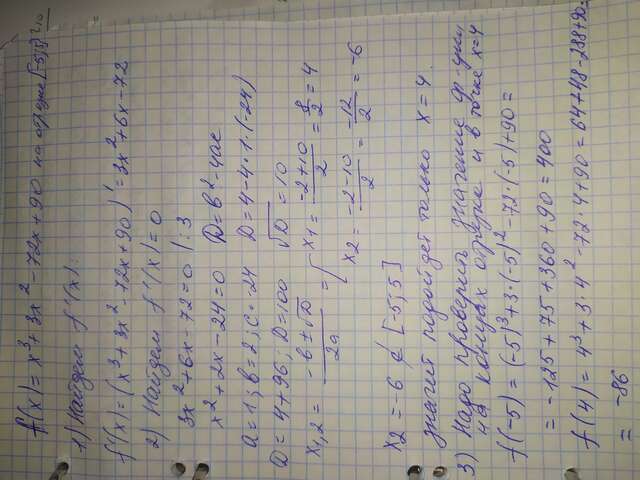 f(x) = x³ + 3x² - 72x + 90 на отрезке [-5;5]
1) Найдем f'(x):
f'(x) = (x³ + 3x² - 72x + 90)' = 3x² + 6x - 72
2) Найдем f'(x) = 0
3x² + 6x - 72 = 0 |: 3
x² + 2x - 24 = 0 D = b² - 4ac
a = 1; b = 2; c = -24 D = 4 - 4·1·(-24)
D = 4 + 96; D = 100 √D = 10
x1,2 = (-b ± √D)/2a = [ x1 = (-2 + 10)/2 = 8/2 = 4
x2 = (-2 - 10)/2 = -12/2 = -6
x2 = -6 ∉ [-5; 5]
значит подойдет только x = 4.
3) Надо проверить значение ф-ции
на концах отрезка и в точке x = 4
f(-5) = (-5)³ + 3·(-5)² - 72·(-5) + 90 =
= -125 + 75 + 360 + 90 = 400
f(4) = 4³ + 3·4² - 72·4 + 90 = 64 + 48 - 288 + 90 =
= -86